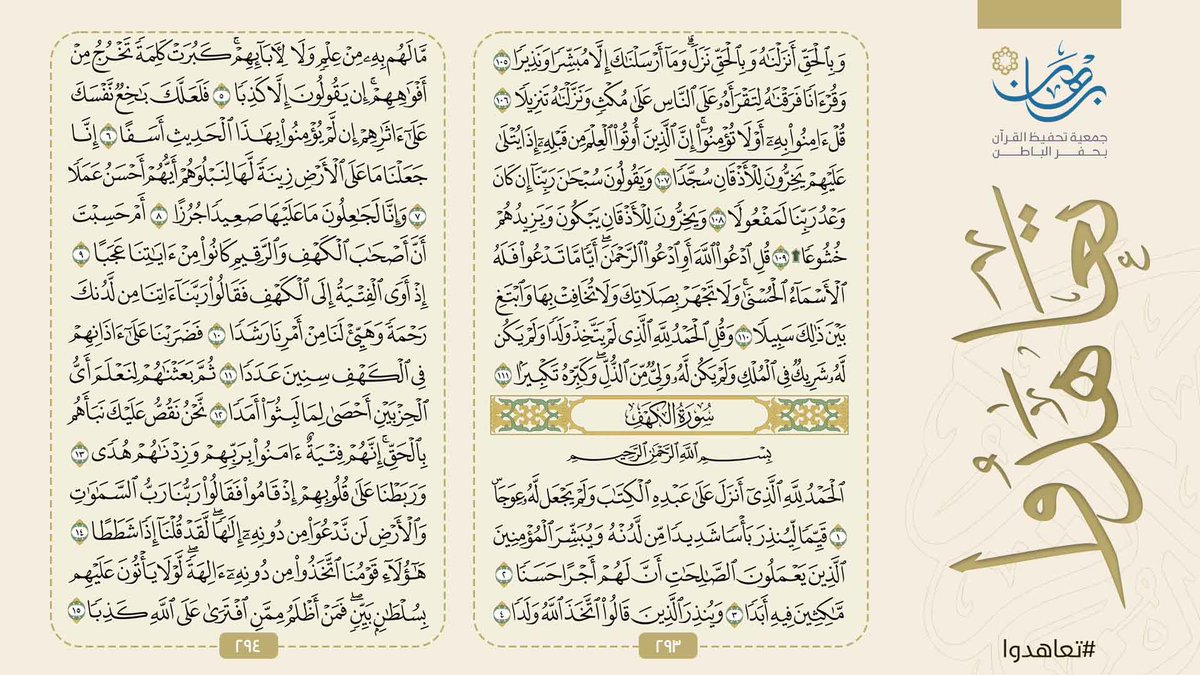 وَبِالْحَقِّ أَنزَلْنَاهُ وَبِالْحَقِّ نَزَلَ ۗ وَمَا أَرْسَلْنَاكَ إِلَّا مُبَشِّرًا وَنَذِيرًا ١٠٥
وَقُرْءَانًا فَرَقْنَاهُ لِتَقْرَأَهُ عَلَى النَّاسِ عَلَىٰ مُكْثٍ وَنَزَّلْنَاهُ تَنزِيلًا ١٠٦
قُلْ ءَامِنُوا بِهِ أَوْ لَا تُؤْمِنُوا ۚ إِنَّ الَّذِينَ أُوتُوا الْعِلْمَ مِن قَبْلِهِ إِذَا يُتْلَىٰ
عَلَيْهِمْ يَخِرُّونَ لِلْأَذْقَانِ سُجَّدًا ١٠٧ وَيَقُولُونَ سُبْحَانَ رَبِّنَا إِن كَانَ
وَعْدُ رَبِّنَا لَمَفْعُولًا ١٠٨ وَيَخِرُّونَ لِلْأَذْقَانِ يَبْكُونَ وَيَزِيدُهُمْ
خُشُوعًا ۩ ١٠٩ قُلِ ادْعُوا اللَّهَ أَوِ ادْعُوا الرَّحْمَٰنَ ۖ أَيًّا مَّا تَدْعُوا فَلَهُ
الْأَسْمَاءُ الْحُسْنَىٰ ۚ وَلَا تَجْهَرْ بِصَلَاتِكَ وَلَا تُخَافِتْ بِهَا وَابْتَغِ
بَيْنَ ذَٰلِكَ سَبِيلًا ١١٠ وَقُلِ الْحَمْدُ لِلَّهِ الَّذِي لَمْ يَتَّخِذْ وَلَدًا وَلَمْ يَكُن
لَّهُ شَرِيكٌ فِي الْمُلْكِ وَلَمْ يَكُن لَّهُ وَلِيٌّ مِّنَ الذُّلِّ ۖ وَكَبِّرْهُ تَكْبِيرًا ١١١
سُورَةُ الْكَهْفِ
بِسْمِ اللَّهِ الرَّحْمَٰنِ الرَّحِيمِ
الْحَمْدُ لِلَّهِ الَّذِي أَنزَلَ عَلَىٰ عَبْدِهِ الْكِتَابَ وَلَمْ يَجْعَل لَّهُ عِوَجًا ۜ
١ قَيِّمًا لِّيُنذِرَ بَأْسًا شَدِيدًا مِّن لَّدُنْهُ وَيُبَشِّرَ الْمُؤْمِنِينَ
الَّذِينَ يَعْمَلُونَ الصَّالِحَاتِ أَنَّ لَهُمْ أَجْرًا حَسَنًا ٢
مَّاكِثِينَ فِيهِ أَبَدًا ٣ وَيُنذِرَ الَّذِينَ قَالُوا اتَّخَذَ اللَّهُ وَلَدًا ٤
٢٩٣
مَّا لَهُم بِهِ مِنْ عِلْمٍ وَلَا لِآبَائِهِمْ ۚ كَبُرَتْ كَلِمَةً تَخْرُجُ مِنْ
أَفْوَاهِهِمْ ۚ إِن يَقُولُونَ إِلَّا كَذِبًا ٥ فَلَعَلَّكَ بَاخِعٌ نَّفْسَكَ
عَلَىٰ ءَاثَارِهِمْ إِن لَّمْ يُؤْمِنُوا بِهَٰذَا الْحَدِيثِ أَسَفًا ٦ إِنَّا
جَعَلْنَا مَا عَلَى الْأَرْضِ زِينَةً لَّهَا لِنَبْلُوَهُمْ أَيُّهُمْ أَحْسَنُ عَمَلًا
٧ وَإِنَّا لَجَاعِلُونَ مَا عَلَيْهَا صَعِيدًا جُرُزًا ٨ أَمْ حَسِبْتَ
أَنَّ أَصْحَابَ الْكَهْفِ وَالرَّقِيمِ كَانُوا مِنْ ءَايَاتِنَا عَجَبًا ٩
إِذْ أَوَى الْفِتْيَةُ إِلَى الْكَهْفِ فَقَالُوا رَبَّنَا ءَاتِنَا مِن لَّدُنكَ
رَحْمَةً وَهَيِّئْ لَنَا مِنْ أَمْرِنَا رَشَدًا ١٠ فَضَرَبْنَا عَلَىٰ ءَاذَانِهِمْ
فِي الْكَهْفِ سِنِينَ عَدَدًا ١١ ثُمَّ بَعَثْنَاهُمْ لِنَعْلَمَ أَيُّ
الْحِزْبَيْنِ أَحْصَىٰ لِمَا لَبِثُوا أَمَدًا ١٢ نَّحْنُ نَقُصُّ عَلَيْكَ نَبَأَهُم
بِالْحَقِّ ۚ إِنَّهُمْ فِتْيَةٌ ءَامَنُوا بِرَبِّهِمْ وَزِدْنَاهُمْ هُدًى ١٣
وَرَبَطْنَا عَلَىٰ قُلُوبِهِمْ إِذْ قَامُوا فَقَالُوا رَبُّنَا رَبُّ السَّمَاوَاتِ
وَالْأَرْضِ لَن نَّدْعُوَا مِن دُونِهِ إِلَٰهًا ۖ لَّقَدْ قُلْنَا إِذًا شَطَطًا ١٤
هَٰؤُلَاءِ قَوْمُنَا اتَّخَذُوا مِن دُونِهِ ءَالِهَةً ۖ لَّوْلَا يَأْتُونَ عَلَيْهِم
بِسُلْطَانٍ بَيِّنٍ ۖ فَمَنْ أَظْلَمُ مِمَّنِ افْتَرَىٰ عَلَى اللَّهِ كَذِبًا ١٥
٢٩٤
برهان
جمعية تحفيظ القرآن
بحفر الباطن
تعاهدوا
#تعاهدوا